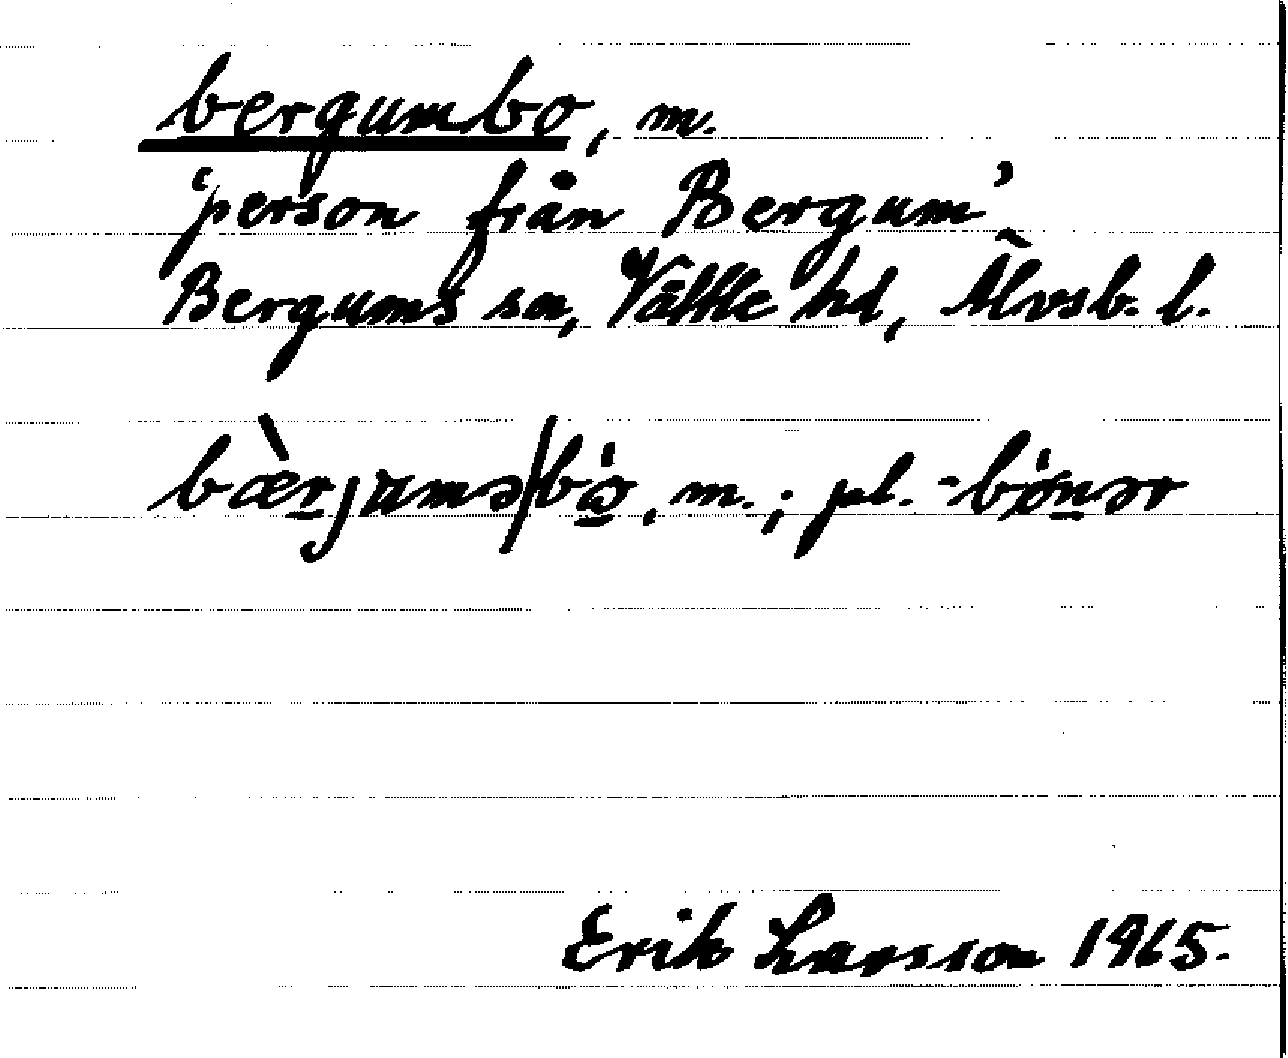 bergumbo, m.
'person från Bergum'
Bergums sn, Vättle hd, Älvsb. l.
bæ̀rjamə/bò, m.; pl. -bónər
Erik Larsson 1965.